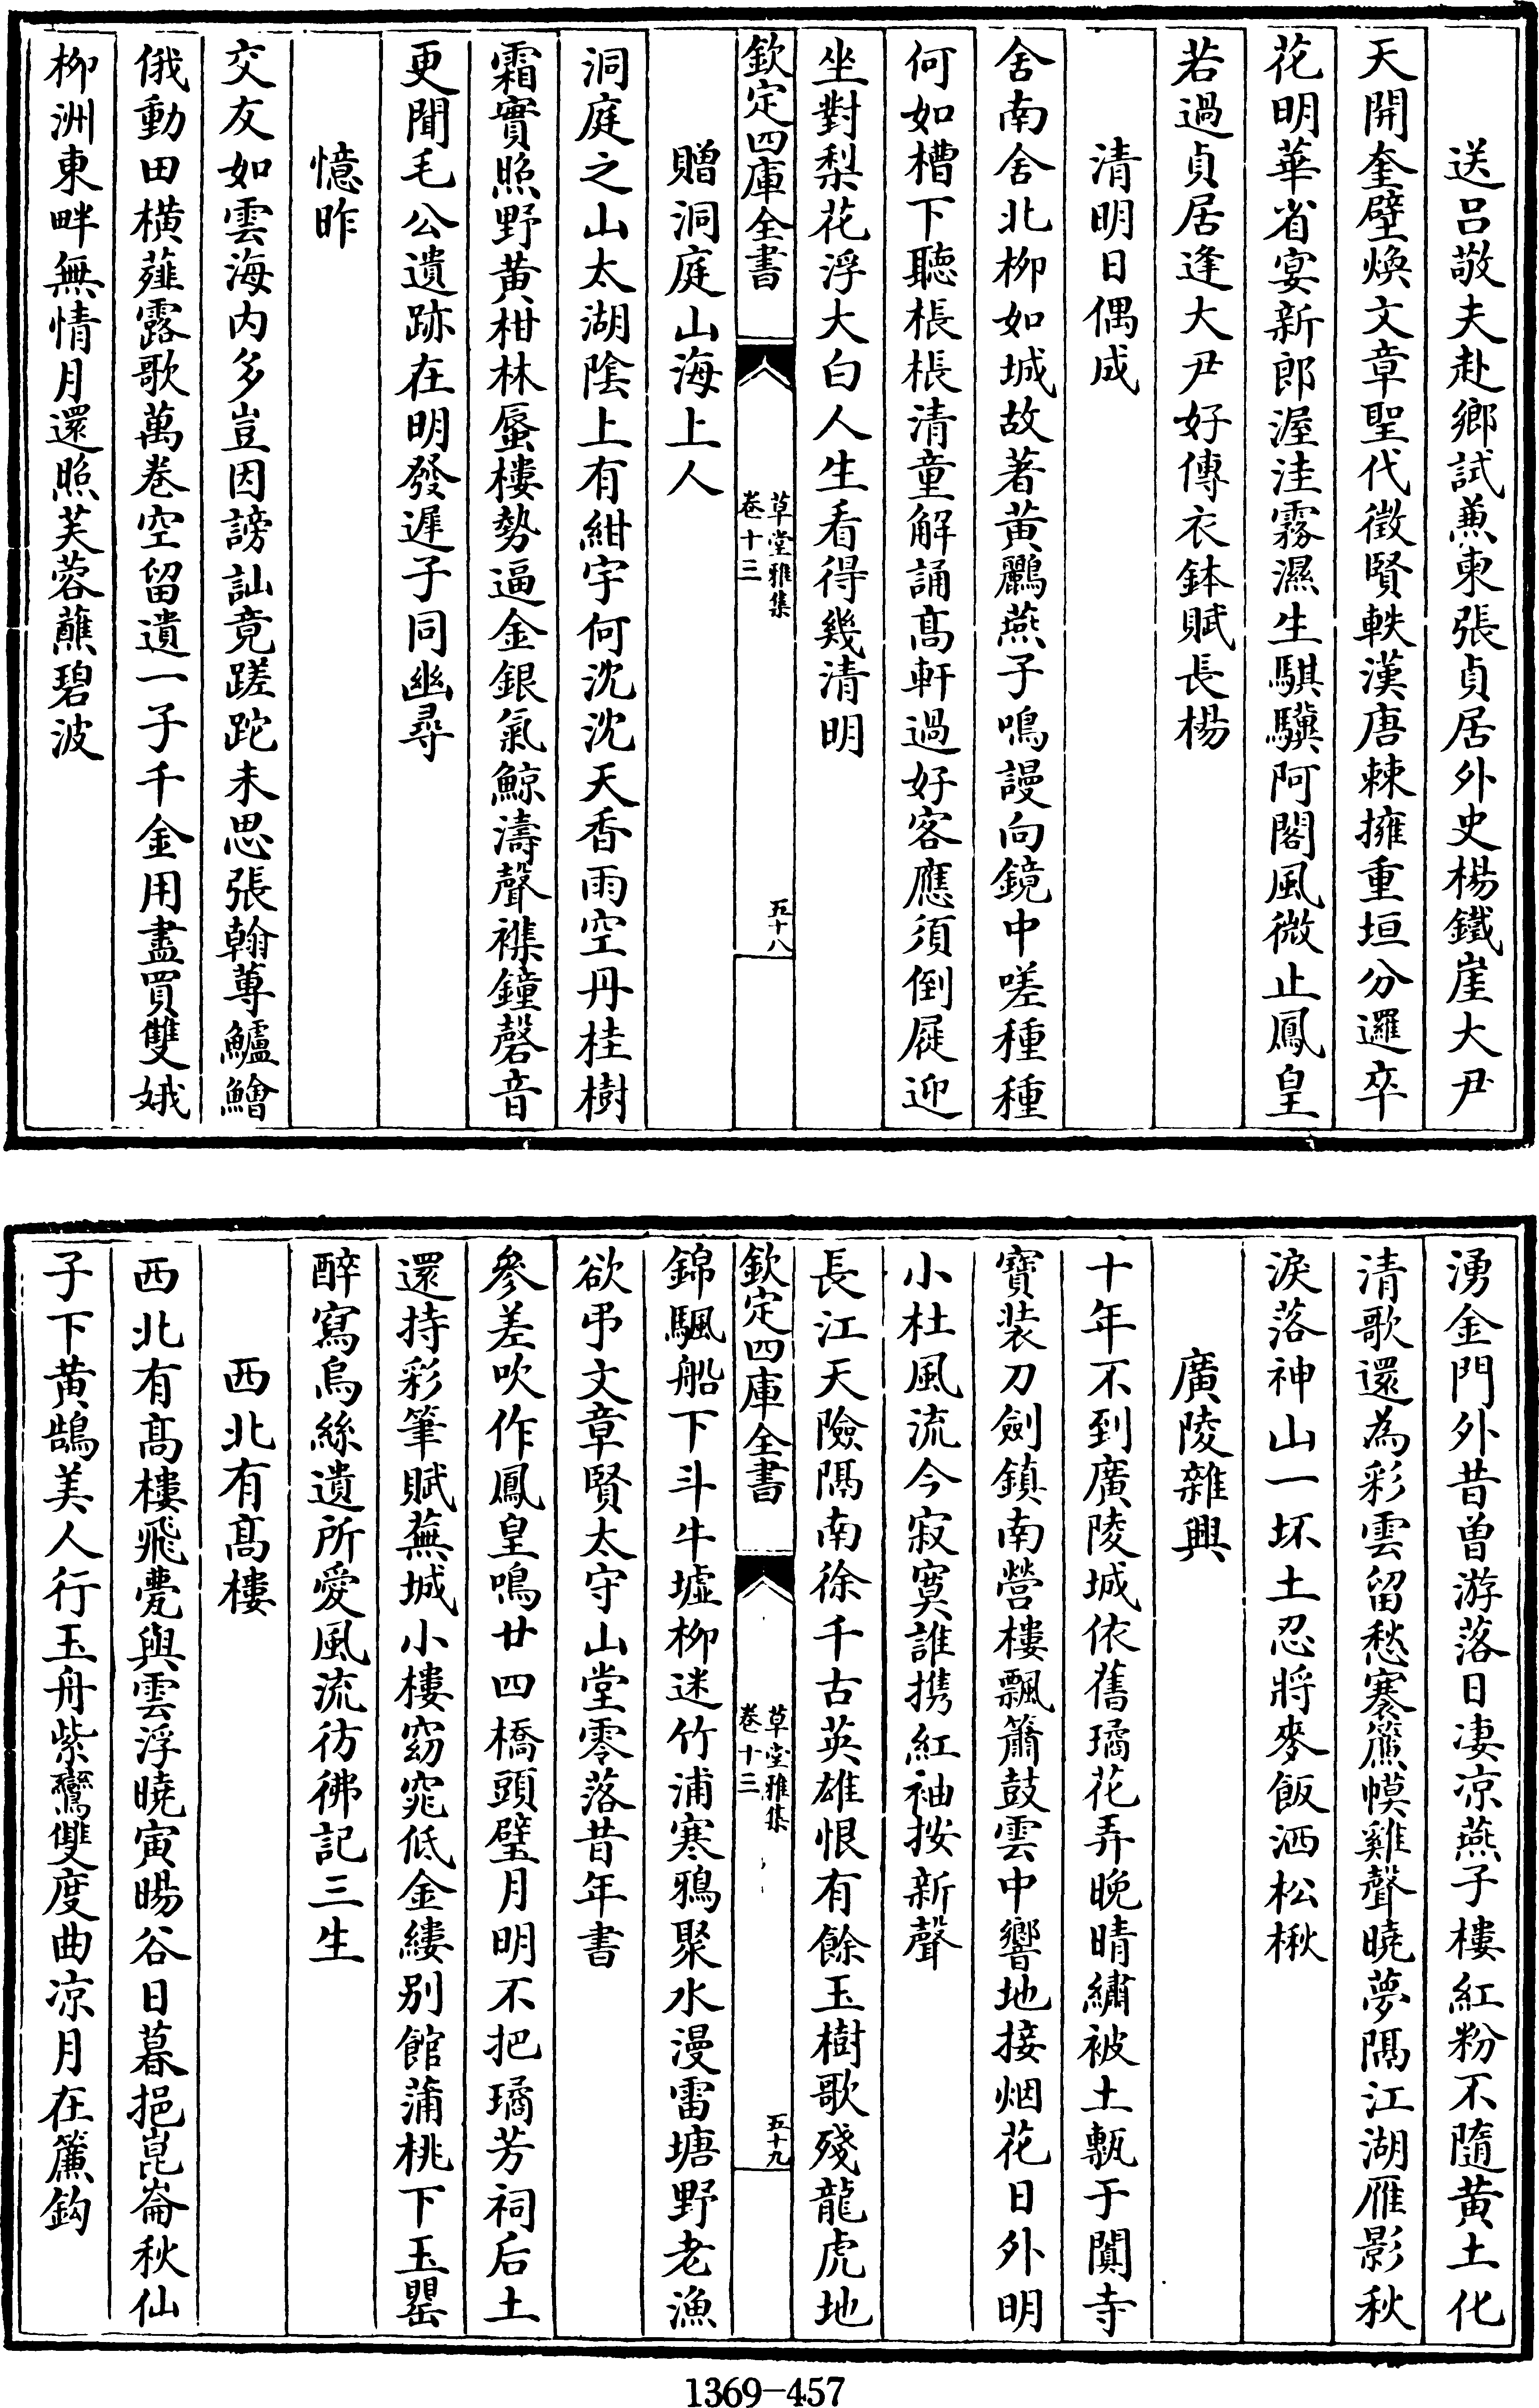 送呂敬夫赴鄉試兼柬張貞居外史楊鐵崖大尹
天開奎壁煥文章聖代徵賢軼漢唐棘擁重垣分邏卒
花明華省宴新郎渥洼霧濕生騏驥阿閣風微止鳳皇
若過貞居逢大尹好傳衣鉢賦長楊
清明日偶成
舍南舍北柳如城故著黃鸝燕子鳴謾向鏡中嗟種種
何如槽下聽棖棖清童解誦髙軒過好客應須倒屣迎
坐對梨花浮大白人生看得幾清明
欽定四庫全書
草堂雅集
卷十三
五十八
贈洞庭山海上人
洞庭之山太湖隂上有紺宇何沈沈天香雨空丹桂樹
霜實照野黃柑林蜃樓勢逼金銀氣鯨濤聲襍鐘磬音
更聞毛公遺跡在明發遲子同幽尋
憶昨
交友如雲海内多豈因謗訕竟蹉跎未思張翰蓴鱸鱠
俄動田橫薤露歌萬巻空留遺一子千金用盡買雙娥
柳洲東畔無情月還照芙蓉蘸碧波
湧金門外昔曽游落日凄凉燕子樓紅粉不隨黃土化
清歌還為彩雲留愁褰簾幙雞聲曉夢隔江湖雁影秋
淚落神山一坏土忍將麥飯洒松楸
廣陵雜興
十年不到廣陵城依舊璚花弄晚晴繡被土甎于闐寺
寶装刀劍鎮南營樓飄簫鼓雲中響地接烟花日外明
小杜風流今寂寞誰携紅袖按新聲
長江天險隔南徐千古英雄恨有餘玉樹歌殘龍虎地
欽定四庫全書
草堂雅集
卷十三
五十九
錦颿船下斗牛墟柳迷竹浦寒鴉聚水漫雷塘野老漁
欲弔文章賢太守山堂零落昔年書
參差吹作鳳皇鳴廿四橋頭璧月明不把璚芳祠后土
還持彩筆賦蕪城小樓窈窕低金縷别館蒲桃下玉罌
醉寫烏絲遺所愛風流彷彿記三生
西北有髙樓
西北有髙樓飛甍與雲浮曉寅暘谷日暮挹崑崙秋仙
子下黃鵠美人行玉舟紫鸞雙度曲凉月在簾鈎
1369-457